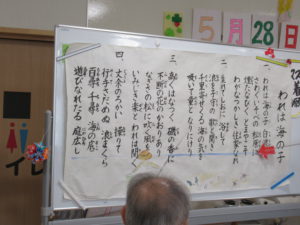 5月28日
われは海の子
われは海の子 白浪の
さわぐいそべの松原に
煙たなびく とまやこそ
わがなつかしき 住家なれ
生れてしおに 浴して
浪を子守の 歌と聞き
千里寄せくる 海の気を
吸いて童と なりにけり
三、
高くはなつく 磯の香に
不断の花の かおりあり
なぎさの松に 吹く風を
いみじき楽と われは聞く
四、
丈余のろかい 操りて
行手さだめぬ 浪まくら
百尋千尋 海の底
遊びなれたる 庭広し
イレ